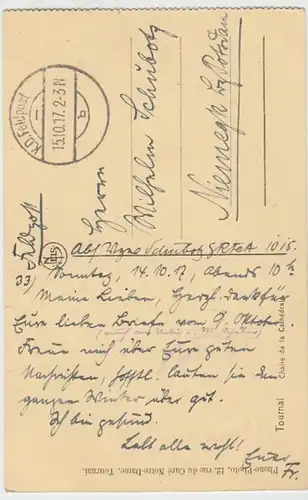 K.D.Feldpost
15.10.17.2-3N
b
Feldpost
Herrn
Wilhelm Schubotz
Niemegk Bz Potsdam
Abs. Schubotz 1015
33) Sonntag, 14.10.17, Abends 10 h
Meine Lieben, Herzl. Dank für
Eure lieben Briefe vom 9. Oktober
Freue mich über Eure guten
Nachrichten, hfftl. lauten sie den
ganzen Winter über gut.
Ich bin gesund.
Lebt alle wohl!
Euer
Fr.
Tournai Chaire de la Cathédrale
Phono-Photo, 12, rue du Curé Notre-Dame, Tournai.